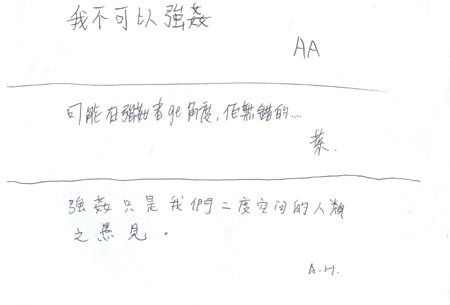 我不可以強姦
AA
可能在強姦者ge角度,佢無錯的...
葉.
強姦只是我們二度空间的人類
之愚見。
A.H.